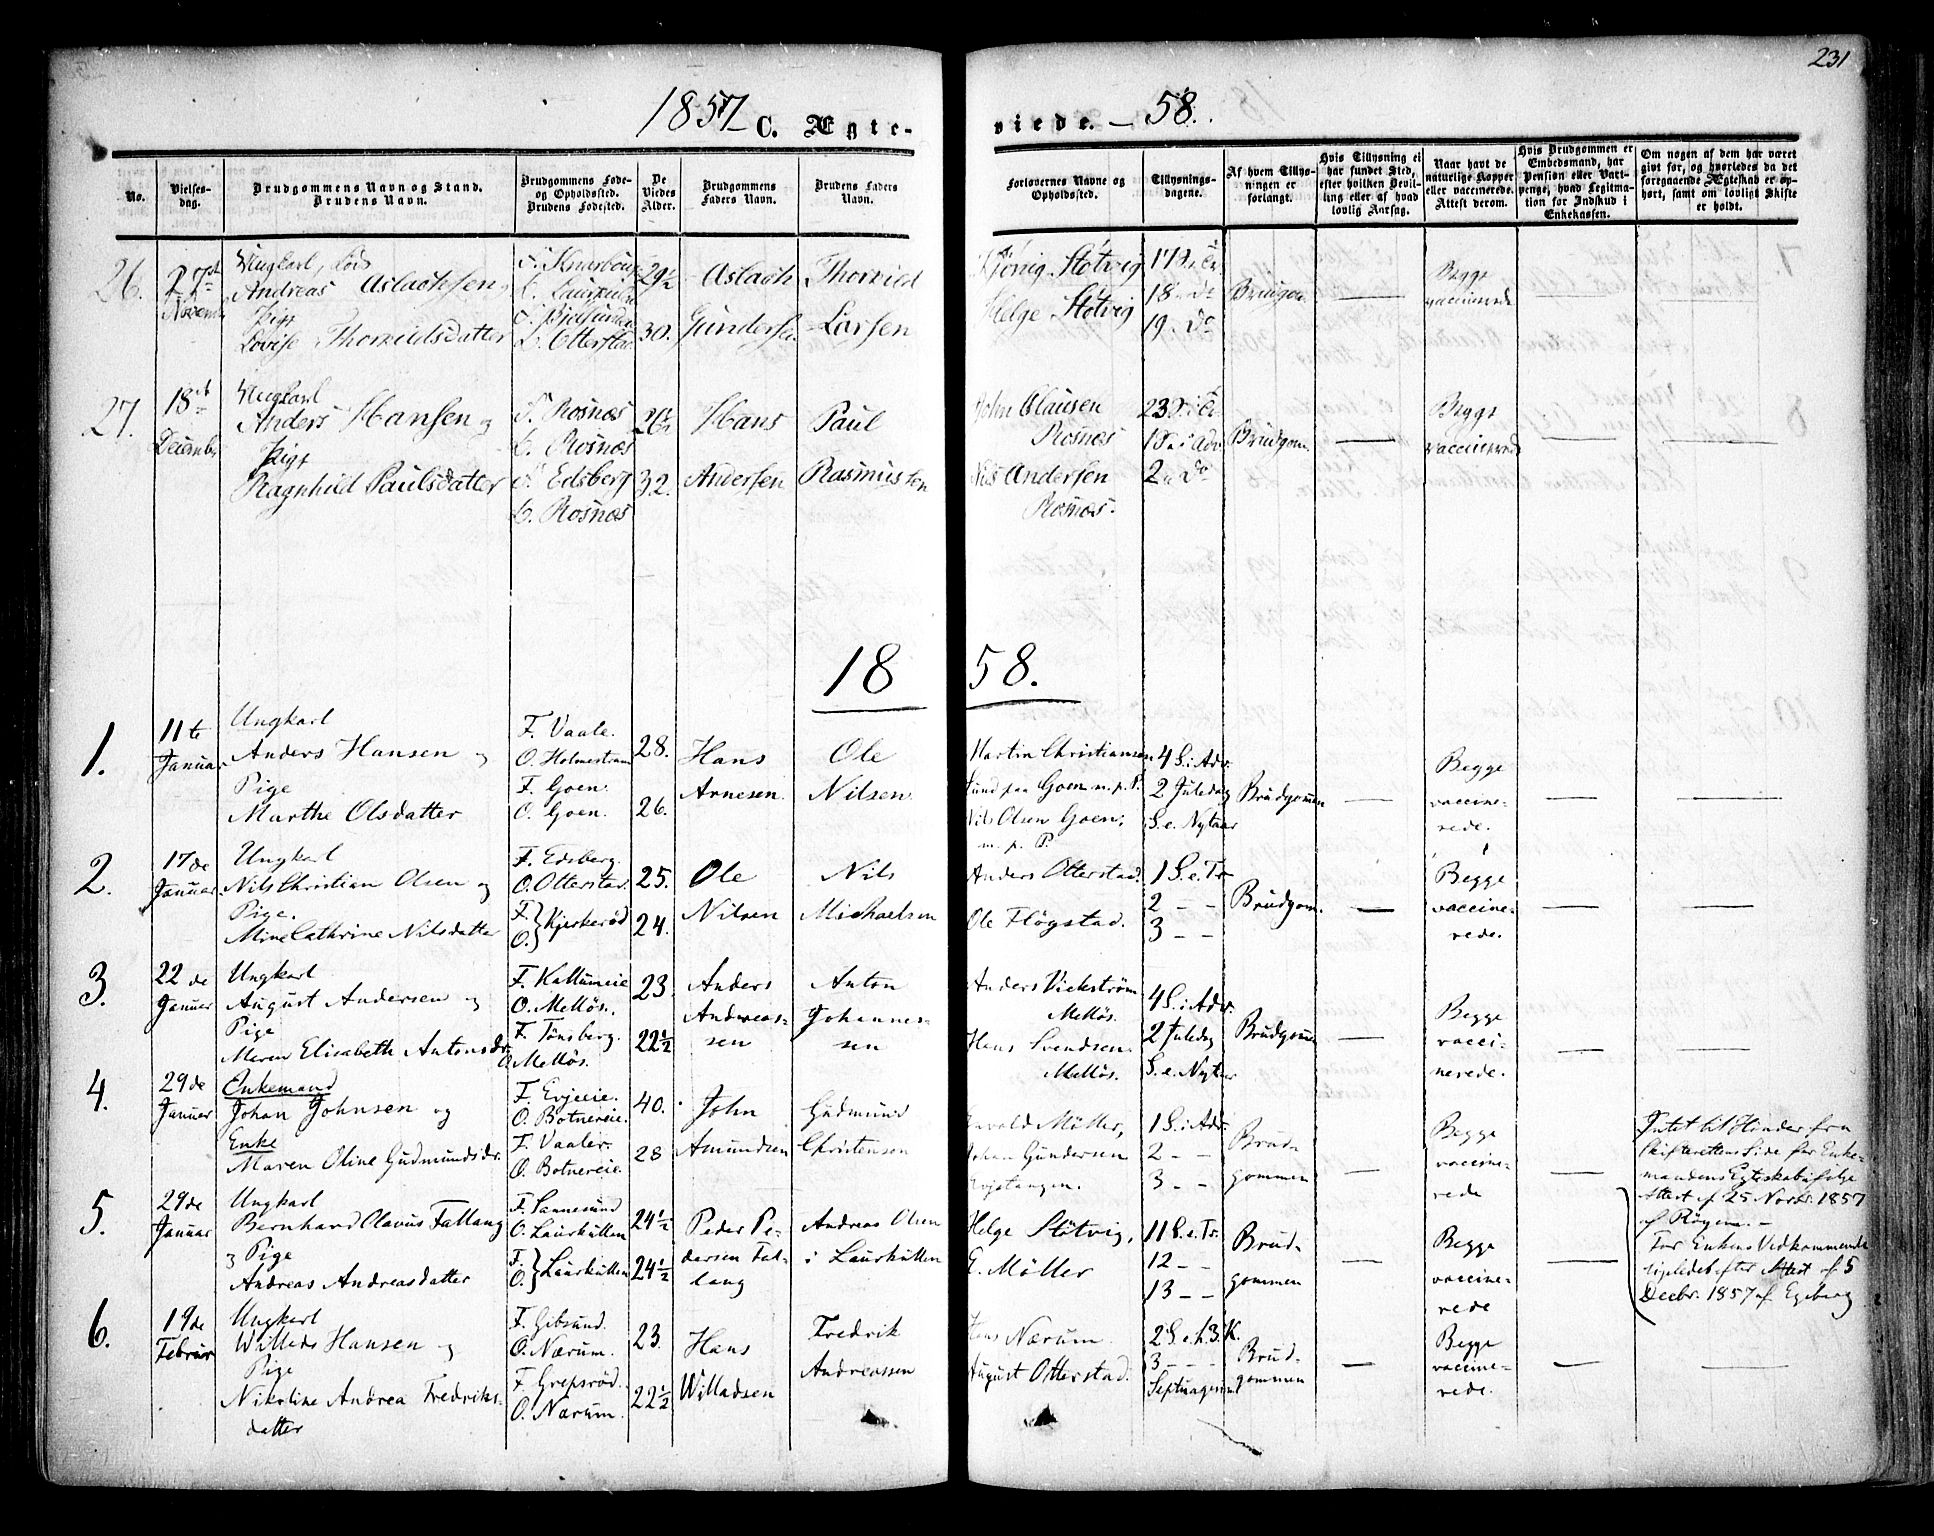 231
1857 C. Ægteviede. — 58.
No.
Vielses-
dag.
Brudgommens Navn og Stand.
Brudens Navn.
Brudgommens Føde-
og Opholdssted.
Brudens Fødested.
De
Viedes
Alder.
Brudgommens
Faders Navn.
Brudens Faders
Navn.
Forlovernes Navne og
Opholdssted.
Tillysnings-
dagene.
Af hvem Tillys-
ningen er
forlangt.
Hvis Tillysning ei
har fundet Sted,
efter hvilken Bevil-
ling eller af hvad
lovlig Aarsag.
Naar havt de
naturlige Kopper
eller vaccinerede.
Attest derom.
Hvis Brudgommen er
Embedsmand, har
Pension eller Vart-
penge, hvad Legitma-
tion for Indskud i
Enkekassen.
Om nogen af dem har været
givt før, og hvorledes da det
foregaaende Ægteskab er op-
hørt, samt om lovligt Skifte
er holdt.
26.
27
Novemb
Ungkarl, Lods
Andreas Aslachsen,
Pige
Lovise Thorkildsdatter
29½
30.
Aslach
Gundersen
Thorkild
Larsen
Støtvig
Helge Støtvig
18 " Do
19 " Do
Brudgom
Begge
vaccinerede
27.
18de
Decembr
Ungkarl
Anders Hansen og
Pige
Ragnhild Paulsdatter
F. Rosnæs
O. Rosnæs
F. Edsberg
O. Rosnæs
26½
32.
Hans
Andersen
Paul
Rasmussen
John Clausen
Rosnæs
Nils Andersen
Rosnæs.
1 S. i Adv.
2 " Do
Brudgom
Begge
vaccinerede
1858.
1.
11te
Januar
Ungkarl
Anders Hansen og
Pige
Marthe Olsdatter
F. Vaale.
O. Holmestrand
F. Goen.
O. Goen.
28.
26.
Hans
Arnesen.
Ole
Nilsen.
Martin Christiansen
Sund paa Goen m. p. P.
Nils Olsen Goen,
m. p. P.
4 S. i Adv.
2 Juledag
S. e. Nytaar
Brudgommen
Begge
vaccine-
rede.
2.
17de
Januar.
Ungkarl
Nils Christian Olsen og
Pige.
Mine Cathrine Nilsdatter
F. Edsberg.
O. Otterstad.
F.
O. } Kjerkerød
25.
24.
Ole
Nilsen
Nils
Michaelsen
Anders Otterstad.
Ole Fløgstad.
1 S. e. Tr
2 - -
3 - -
Brudgom.
Begge
vaccine-
rede.
3.
22de
Januar
Ungkarl
August Andersen og
Pige
Maren Elisabeth Antonsdr.
F. Kallumeie
O. Melløs.
F. Tønsberg.
O. Melløs.
23.
22½
Anders
Andreas-
sen
Anton
Johannes-
sen
Anders Vickstrøm
Melløs.
Hans Svendsen.
Melløs.
4 S. i Adv.
2 Juledag
S. e. Nytaar
Brudgommen
Begge
vacci-
nerede.
4.
29de
Januar
Enkemand
Johan Johnsen og
Enke
Maren Oline Gudmundsdr.
F. Evjeeie.
O. Botnereie.
F. Vaaler.
O. Botnereie.
40.
28
John
Amundsen
Gudmund
Christensen
Møller,
Johan Gundersen
1 S. i Adv.
2 - -
3 - -
Brud-
gommen
Begge
vaccine-
rede
Intet til Hinder fra
Skifterettens Side for Enke-
mandens Egteskab ifølge
Attest af 25 Novbr. 1857
af Røyem. -
For Enkens Vedkommende
ligeledes efter Attest af 5
Decbr. 1857 af Egeberg
5.
29de
Januar
Ungkarl
Bernhard Olavus Fallang
og Pige
Andreas Andreasdatter
F. Sannesund
O. Laurkullen
F.
O. } Laurkullen
24½
24½
Peder Pe-
dersen Fal-
lang
Andreas Olsen
i Laurkullen
Helge Støtvig,
E. Møller
11 S. e. Tr.
12 - -
13 - -
Brud-
gommen
Begge
vaccine-
rede
6.
19de
Februar
Ungkarl
Willads Hansen og
Pige
Nikoline Andrea Fredriks-
datter
F. Gibsund.
O. Nærum.
F. Grepsrød.
O. Nærum.
23.
22½
Hans
Willadsen
Fredrik
Andreassen
Jens Nærum.
August Otterstad.
2 S. e. h. 3. K.
3 - - -
Septuagesima
Brud-
gommen
Begge
vaccine-
rede.